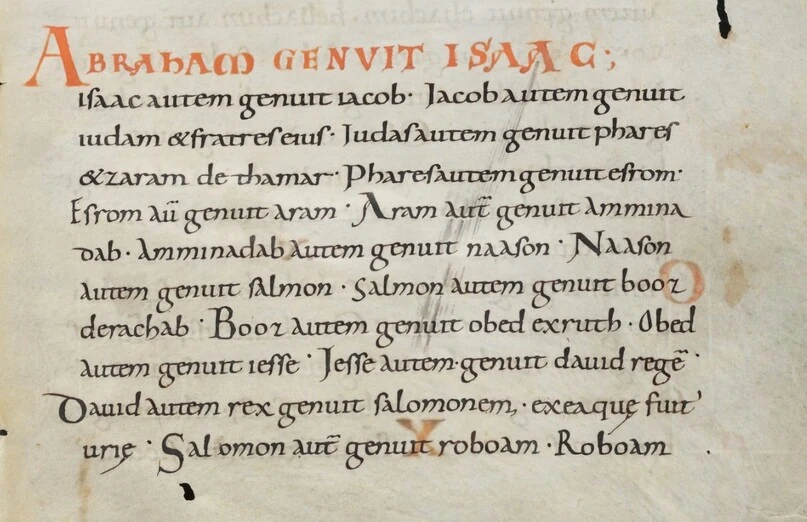 ABRAHAM GENUIT ISAAC;
Isaac autem genuit iacob· Jacob autem genuit
iudam & fratres eius· Judas autem genuit phares
& zaram de thamar· Phares autem genuit esrom·
Esrom aū genuit aram· Aram aut̄ genuit ammina
dab· Amminadab autem genuit naason· Naason
autem genuit salmon· Salmon autem genuit booz
derachab· Booz autem genuit obed exruth· Obed
autem genuit iesse· Jesse autem·genuit dauid regē·
Dauid autem rex genuit salomonem,· exeaquę fuit
urię· Salomon aut̄ genuit roboam· Roboam